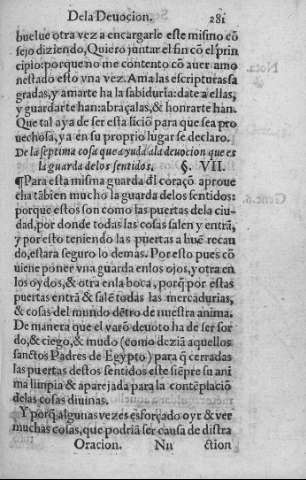 Dela Deuocion. 281
buelue otra vez a encargarle este mismo cõ
sejo diziendo, Quiero juntar el fin cõ el prin
cipio: porque no me contento cõ auer amo
nestado esto vna vez. Ama las escripturas sa
gradas, y amarte ha la sabiduria: date a ellas,
y guardarte han: abraçalas, & honrarte han.
Que tal aya de ser esta liciõ para que sea pro
uechosa, ya en su proprio lugar se declaro.
De la septima cosa que ayuda ala deuocion que es
la guarda delos sentidos. §. VII.
¶Para esta misma guarda dl coraçõ aproue
cha tãbien mucho la guarda delos sentidos:
porque estos son como las puertas dela ciu-
dad, por donde todas las cosas salen y entrã,
y por esto teniendo las puertas a buẽ recau
do, estara seguro lo demas. Por esto pues cõ
uiene poner vna guarda enlos ojos, y otra en
los oydos, & otra enla boca, porq̃ por estas
puertas entrã & salẽ todas las mercadurias,
& cosas del mundo dẽtro de nuestra anima.
De manera que el varõ deuoto ha de ser sor
do, & ciego, & mudo (como dezia aquellos
sanctos Padres de Egypto) para q̃ cerradas
las puertas destos sentidos este siẽpre su ani
ma limpia & aparejada para la contẽplaciõ
delas cosas diuinas.
Y porq̃ algunas vezes es forçado oyr & ver
muchas cosas, que podriã ser causa de distra
Oracion. Nn ction